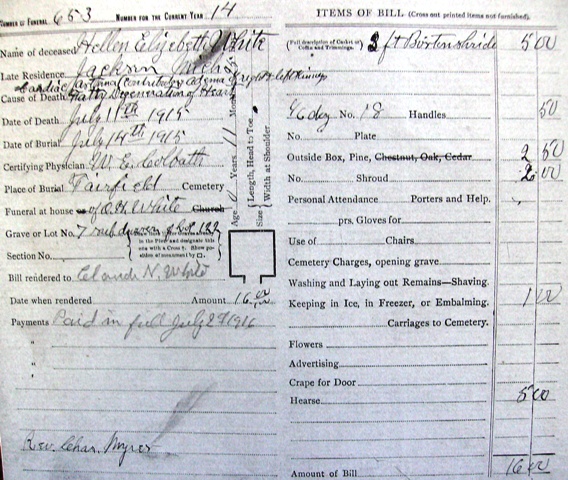 NUMBER OF FUNERAL 653 NUMBER FOR THE CURRENT YEAR 14
Name of deceased Hellen Elizabeth White
Late Residence Jackson Mich
Cardiac Asthma Contributory of right & left
Cause of Death Fatty Degeneration of Heart
Date of Death July 11th 1915
Date of Burial July 14th 1915
Certifying Physician W. E. Colbath
Place of Burial Fairfield Cemetery
Funeral at house of White Church
Grave or Lot No. 7 122
in the Plot and designate this
one with a Cross †. Show position of monument by □.
Section No.
Bill rendered to Claude N. White
Date when rendered Amount 16.00
Payments Paid in full July 27 1916
"
"
"
Rev. Chas. Myres
Age Years 11 Months
Size { Length, Head to Toe
Width at Shoulder
ITEMS OF BILL (Cross out printed items not furnished).
(Full description of Casket or Coffin and Trimmings. ft 5 00
No. 18 Handles 50
No. Plate
Outside Box, Pine, Chestnut, Oak, Cedar 2 50
No. Shroud 2 00
Personal Attendance Porters and Help.
prs. Gloves for
Use of Chairs.
Cemetery Charges, opening grave
Washing and Laying out Remains—Shaving.
Keeping in Ice, in Freezer, or Embalming. 1 00
Carriages to Cemetery.
Flowers
Advertising
Crape for Door
Hearse 5 00
Amount of Bill 16 00